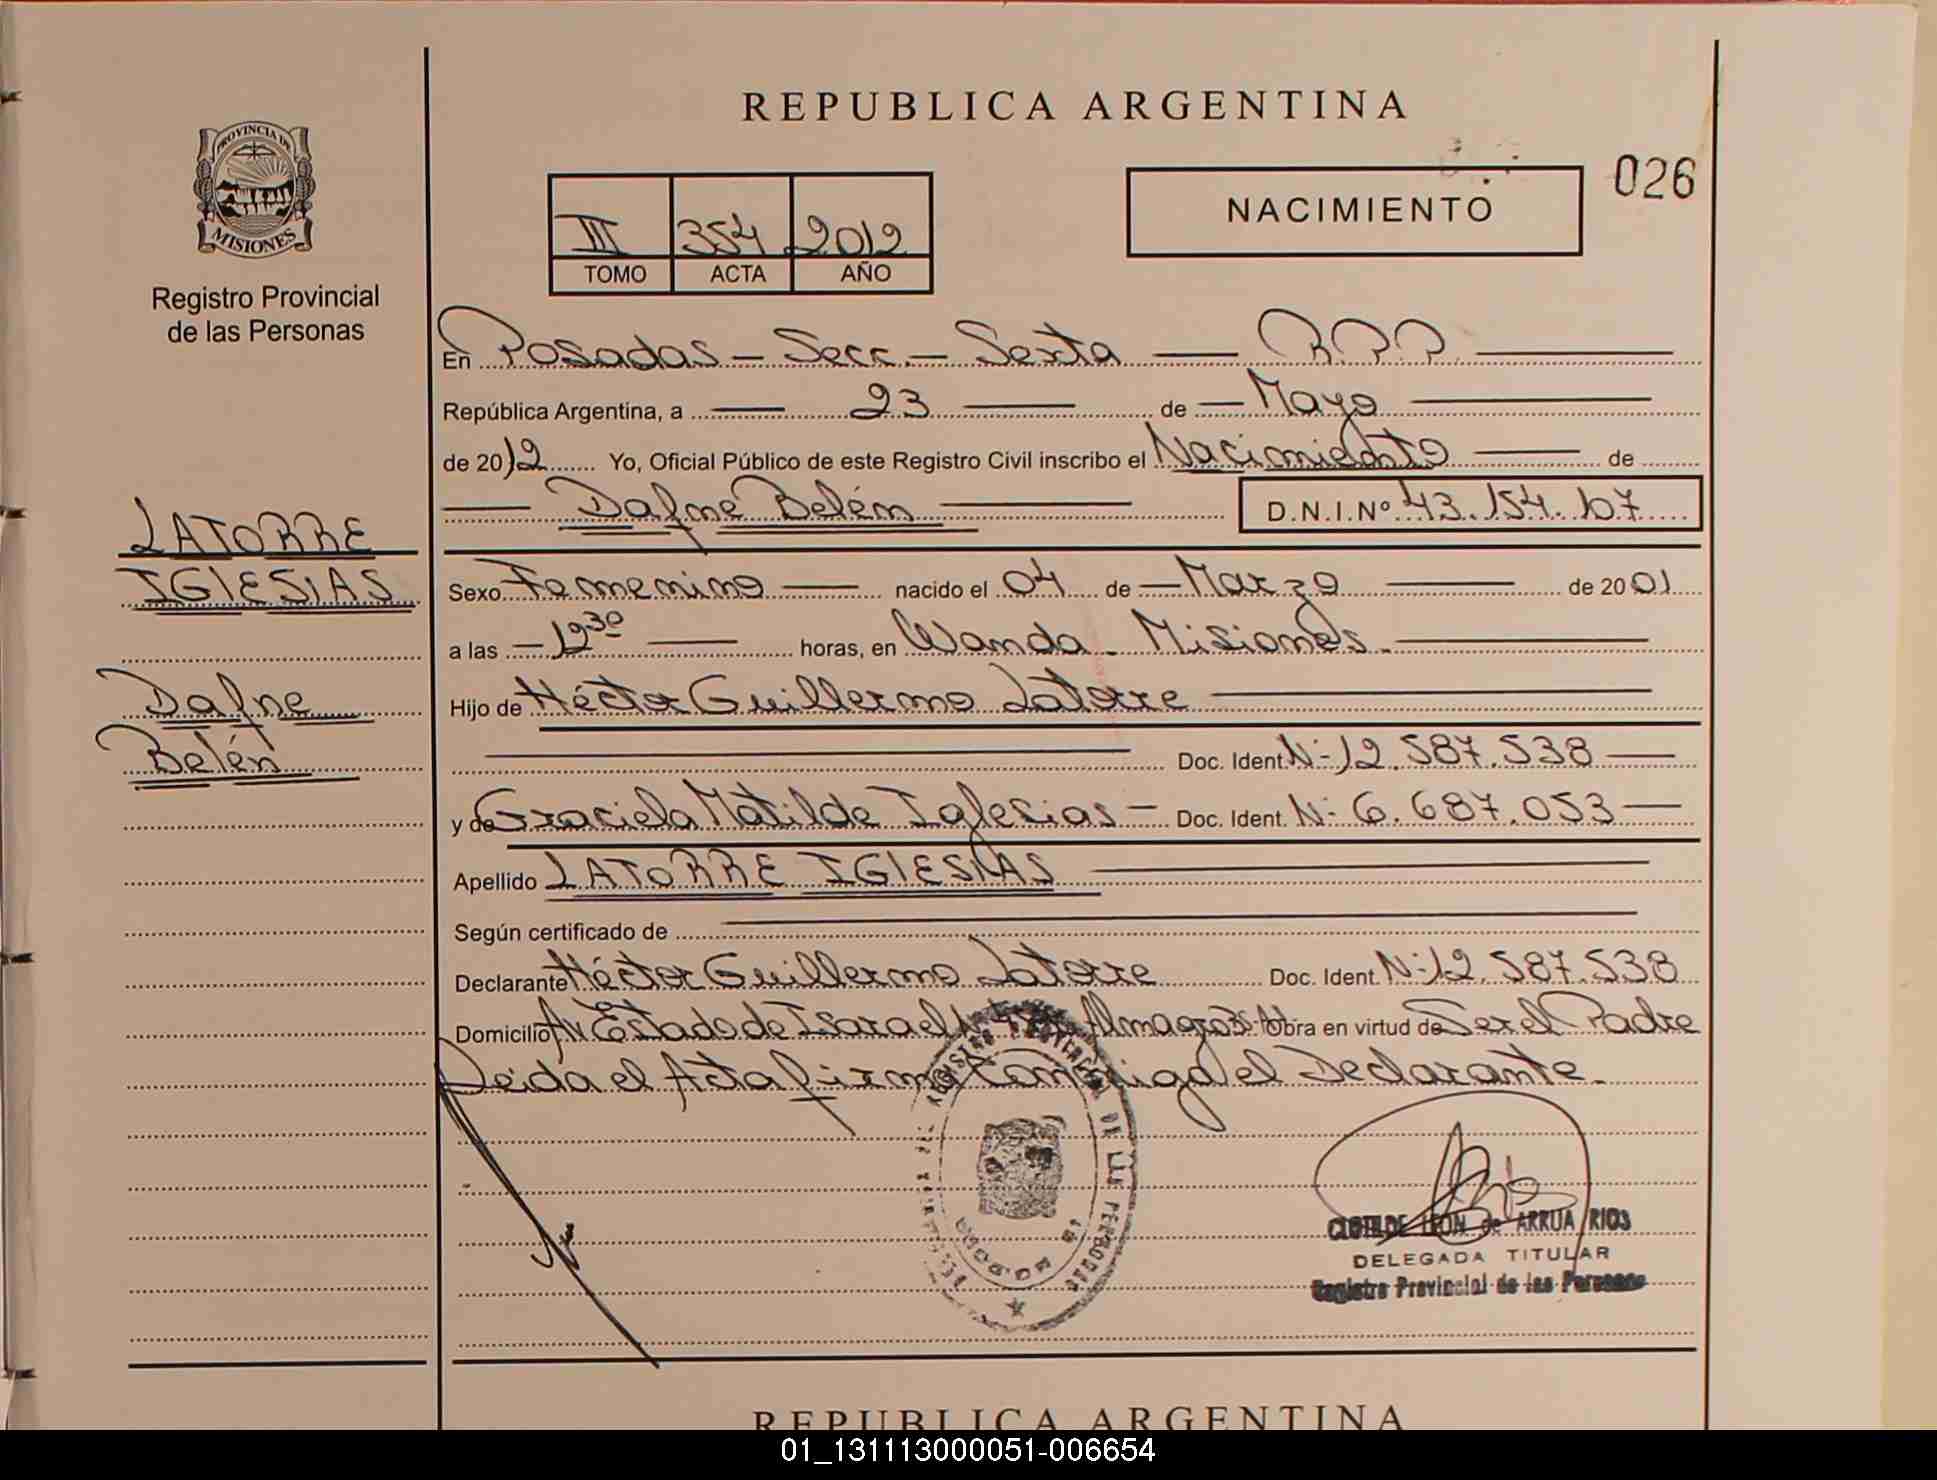 REPUBLICA ARGENTINA
026
PROVINCIA DE
MISIONES
Registro Provincial
de las Personas
III 354 2012
TOMO ACTA AÑO
NACIMIENTO
En Posadas – Secc. – Sexta — R.P.P. —
República Argentina, a — 23 — de — Mayo —
de 2012 Yo, Oficial Público de este Registro Civil inscribo el Nacimiento — de
— Dafne Belén — D.N.I.Nº 43.154.107
LATORRE
IGLESIAS
Dafne
Belén
Sexo Femenino — nacido el 04 de — Marzo — de 2001
a las — 12³⁰ — horas, en Wanda - Misiones. —
Hijo de Héctor Guillermo Latorre —
— Doc. Ident. Nº 12.587.538 —
y de Graciela Matilde Iglesias — Doc. Ident. Nº 6.687.053 —
Apellido LATORRE IGLESIAS —
Según certificado de —
Declarante Héctor Guillermo Latorre Doc. Ident. Nº 12.587.538
Domicilio Av Estado de Israel Almagro Obra en virtud de Ser el Padre
Leida el Acta firma conmigo el Declarante.
CLOTILDE LEON de ARRUA RIOS
DELEGADA TITULAR
Registro Provincial de las Personas
REPUBLICA ARGENTINA
01_131113000051-006654